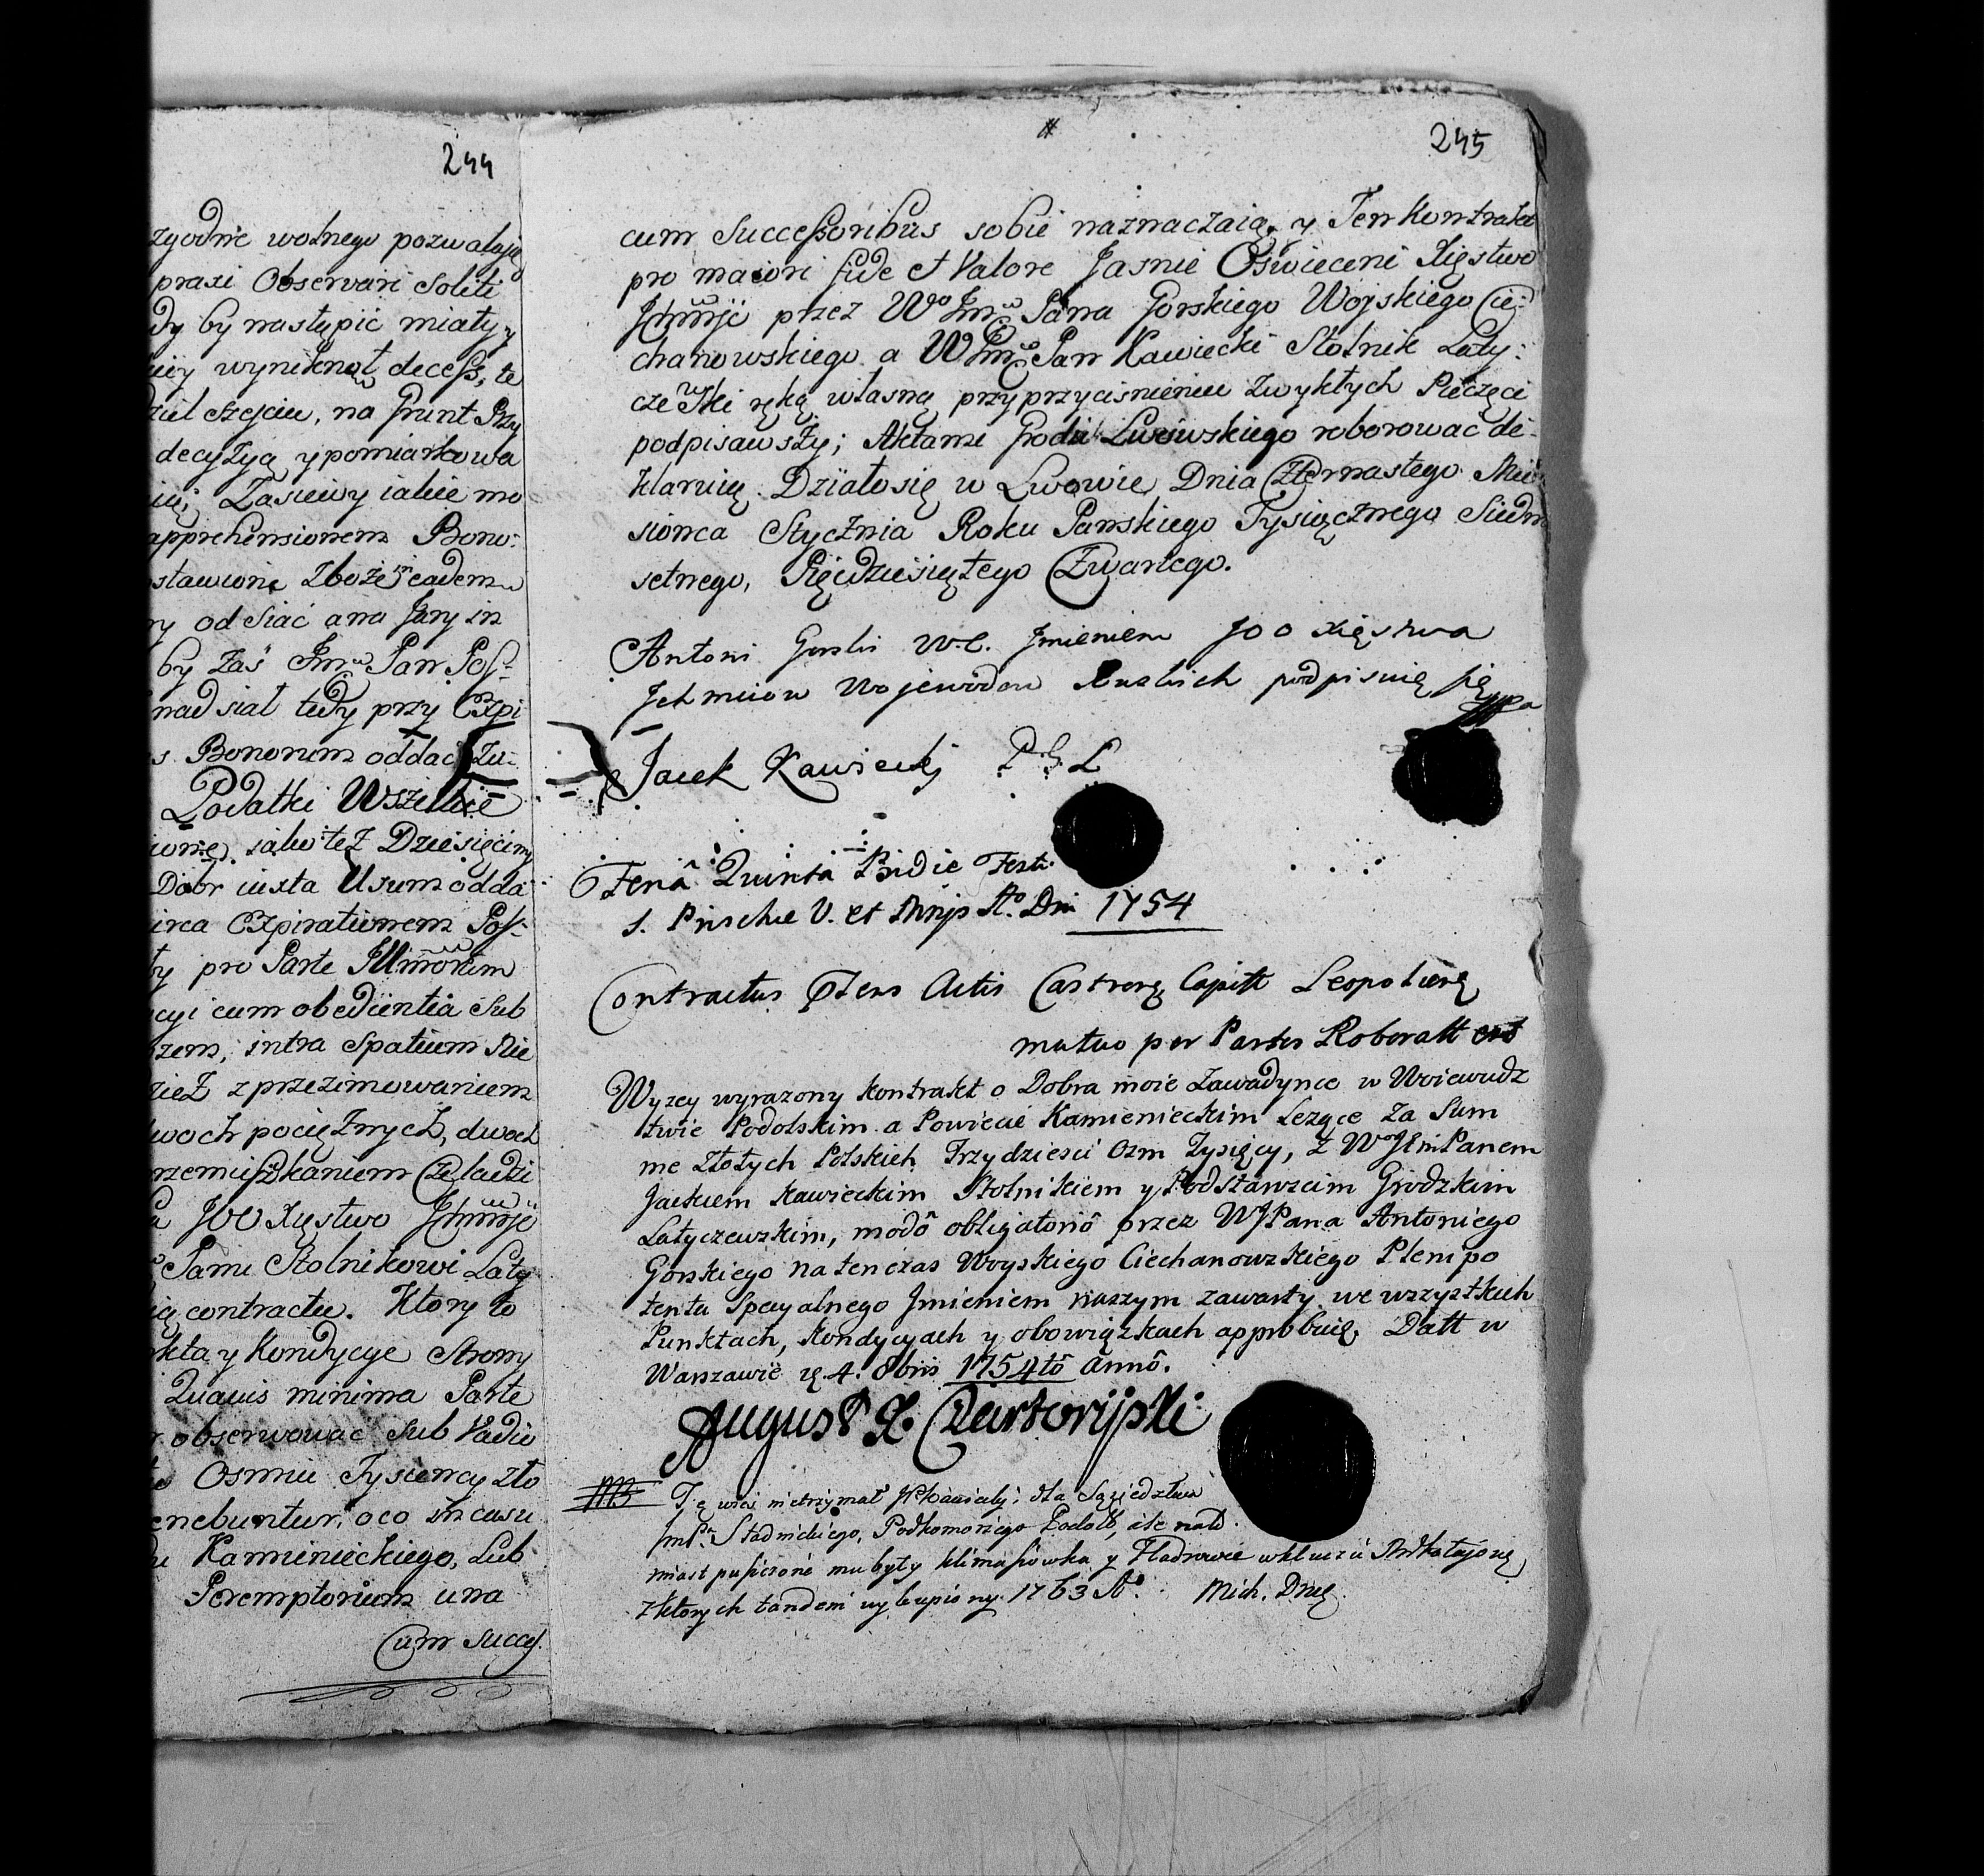 244
zgodnie wolnego pozwalają
praxi Observari Soliti
dy by nastąpić miały y
wyniknął decess, te
Szejciu, na Grunt Przy
decyzyą y pomiarkowa
Zasiewy iakie mo
apprehensionem Bono:
stawione Zboże in eadem
ry odsiać a na Jary in
by zaś Jmć Pan Pos:
nadsiał tedy przy Expi
s Bonorum oddać Zu:
Podatki Wszelkie
iako też Dziesięciny
Dobr iuxta Usum odda
circa Expirationem Pos:
ty pro Parte Illmorum
cyi cum obedientia Sub
rzem, intra Spatium Nie
z przezimowaniem
dwoch pociężnych, dwoch
przemieszkaniem Czeladzi
JOO Xięstwo Jchmć
Panu Stolnikowi Laty
contractu. Ktory to
kta y Kondycye Strony
Quavis minima Parte
observować Sub Vadio
Osmiu Tysięcy Zło
tenebuntur, o co in casu
Kamienieckiego, Lub
Peremptorium una
Cum Success.
245
cum Successoribus sobie naznaczaią, y Ten Kontrakt
pro maiori fide et Valore Jasnie Oświeceni Xięstwo
Jchmć przez Wo Jmć Pana Gorskiego Woyskiego Cie:
chanowskiego a W Jmć Pan Kawiecki Stolnik Laty:
czewski ręką własną przy przycisnieniu Zwykłych Pieczęci
podpisawszy; Aktami Grodu Lwowskiego roborować de:
klaruią. Działo się w Lwowie Dnia Czternastego Mie:
sionca Stycznia Roku Panskiego Tysiącznego Siedm
setnego, Pięcdziesiątego Czwartego.
Antoni Gorski W.C. Jmieniem JOO Xięstwa
Jchmciow Wojewodow Ruskich podpisuię się mpa
Jacek Kawiecki P. G. L
Feriâ Quintâ Pridie Festi
S. Priscae V. et Mrijs Ao. Dni 1754
Contractus Ptens Actis Castren Capitt Leopolien
mutuo per Partes Roboratt est
Wyzey wyrazony kontrakt o Dobra moie Zawadynce w Woiewudz
twie Podolskim a Powiecie Kamienieckim Lezące za Sum
me Złotych Polskich Trzydziesci Ozm Tysięcy, z W JEmPanem
Jackiem Kawieckim Stolnikiem y Podstarzcim Grodzkim
Latyczewzkim, modô obligatoriô przez WJPana Antoniego
Gorskiego na ten czas Woyskiego Ciechanowzkiego Plenipo
tenta Specyalnego Jmieniem naszym zawarty we wszystkich
Punktach, kondycyach y obowiązkach approbuię. Datt w
Warszawie d. 4. 8bris 1754tô Annô.
August X. Czartoryski
NB Tę wieś nietrzymał JP Kawiecki; dla Sąsiedztwa
JmP. Stadnickiego, Podkomorzego Podolk, ale nato
miast pusczone mu były Klimasiowka y Hadrowie w kluczu
z ktorych tandem wykupiony 1763 Ao. Mich. Drug